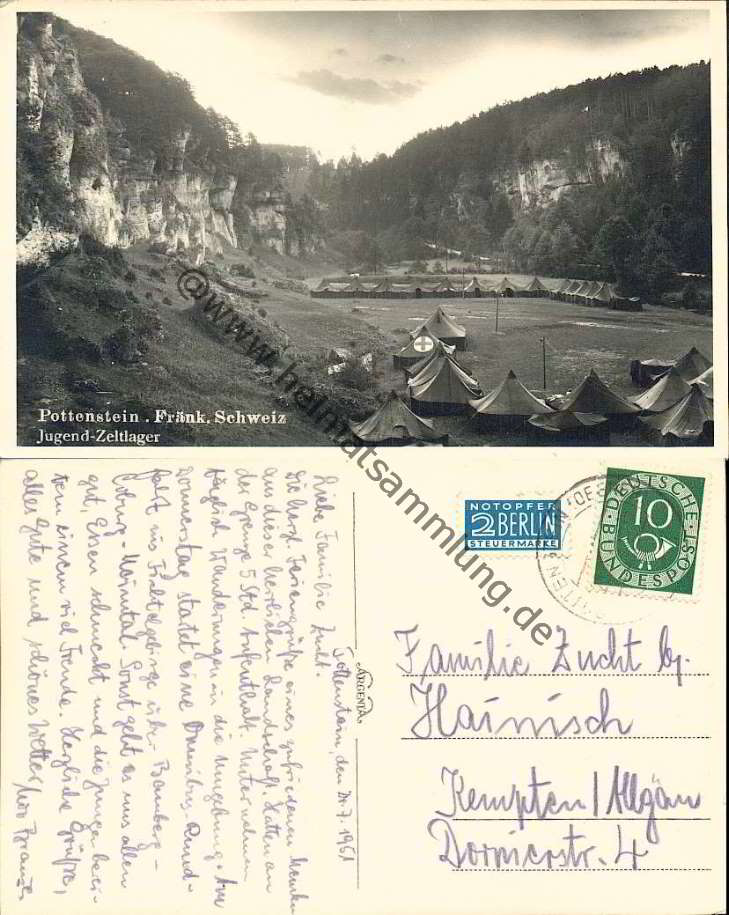 Pottenstein . Fränk. Schweiz
Jugend-Zeltlager
@www.heimatsammlung.de
Pottenstein, den 7. 1951
Liebe Familie
Die herzl. Feriengrüße eines zufriedenen
aus dieser herrlichen Landschaft. Hatten an
der Grenze 5 Std. Aufenthalt. Unternehmen
täglich Wanderungen in die Umgebung. Am
Donnerstag startet eine Omnibus-Rund-
fahrt ins Fichtelgebirge über Bamberg-
Coburg-. Sonst geht es uns allen
gut, Essen schmeckt und die Jungen berei-
ten einem viel Freude. Herzliche Grüße,
alles Gute und schönes Wetter
ARGENTA
NOTOPFER
2 BERLIN
STEUERMARKE
DEUTSCHE
10
BUNDESPOST
Familie Zucht bj.
Hainisch
Kempten/Allgäu
4